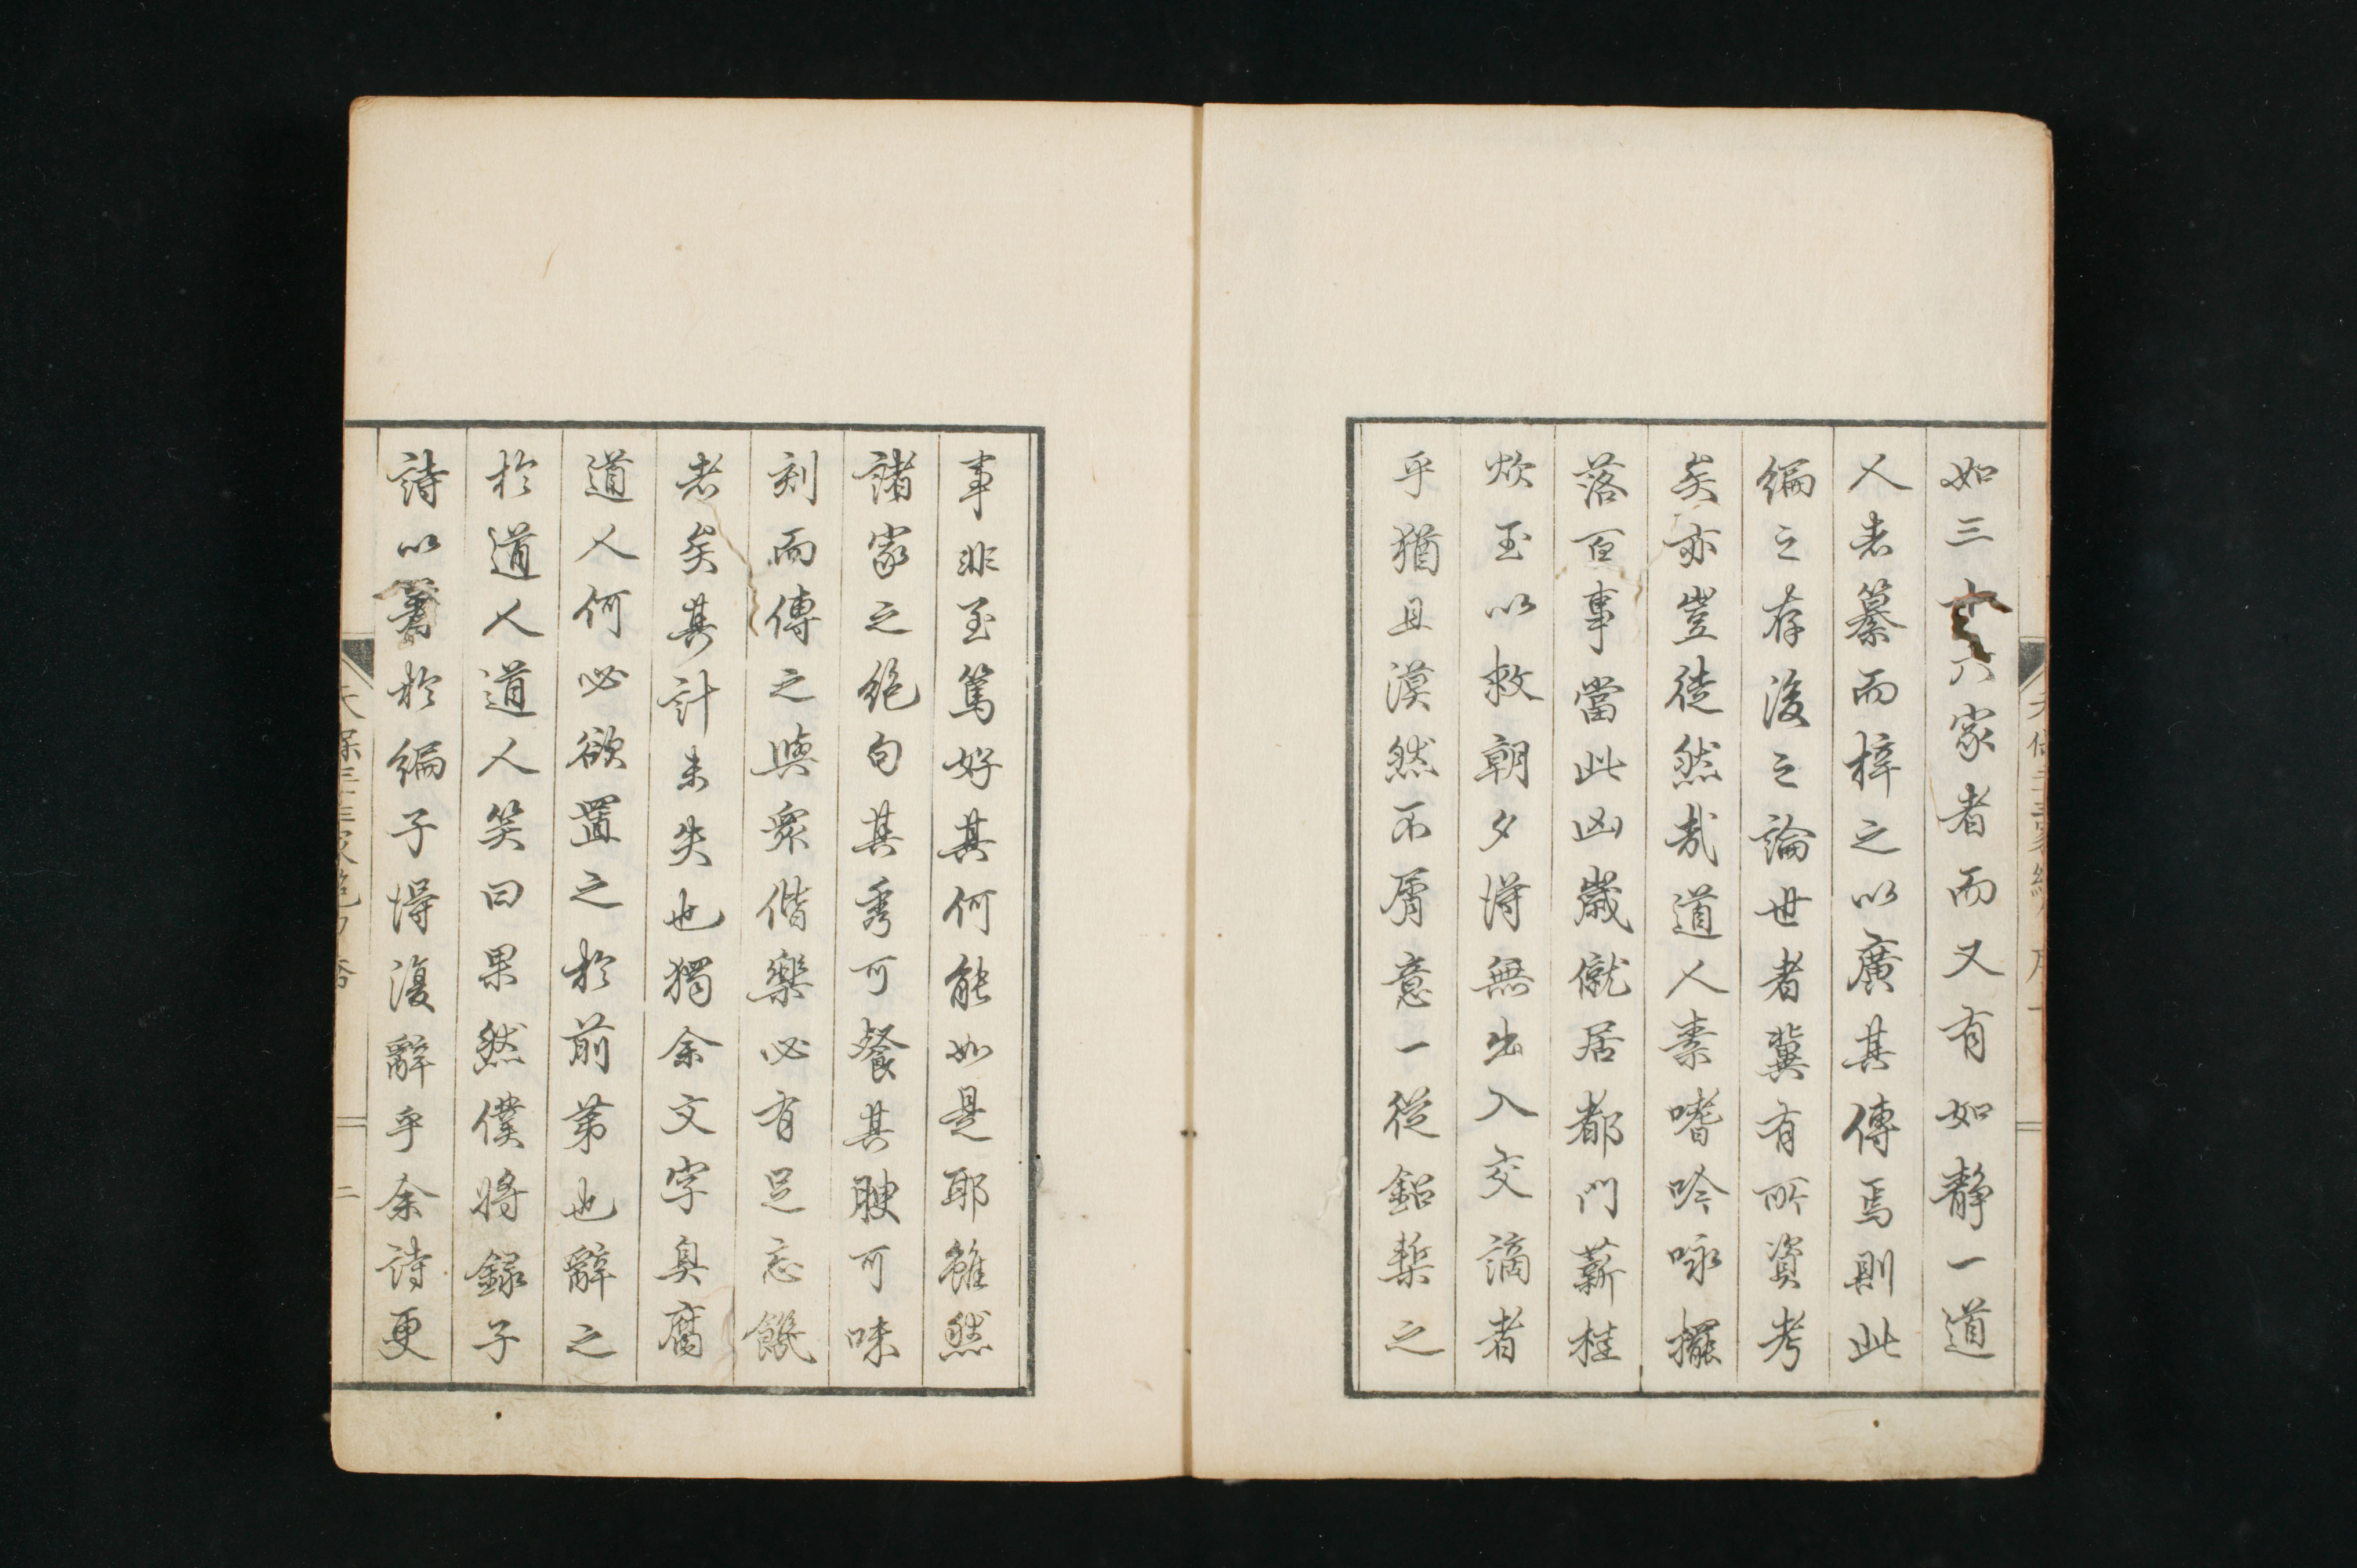 如三十六家者而又有如静一道
人者纂而梓之以廣其傳焉則此
編之存後之論世者冀有所資考
矣亦豈徒然哉道人素嗜吟咏擺
落百事當此凶歲僦居都門薪桂
炊玉以救朝夕得無出入交謫者
乎猶且漠然不屑意一從鉛槧之
事非至篤好其何能如是耶雖然
諸家之絶句其秀可餐其腴可味
刻而傳之與衆偕樂必有足忘饑
者矣其計未失也獨余文字臭腐
道人何必欲置之於前第也辭之
於道人道人笑曰果然僕將録子
詩以署於編子得復辭乎余詩更
二